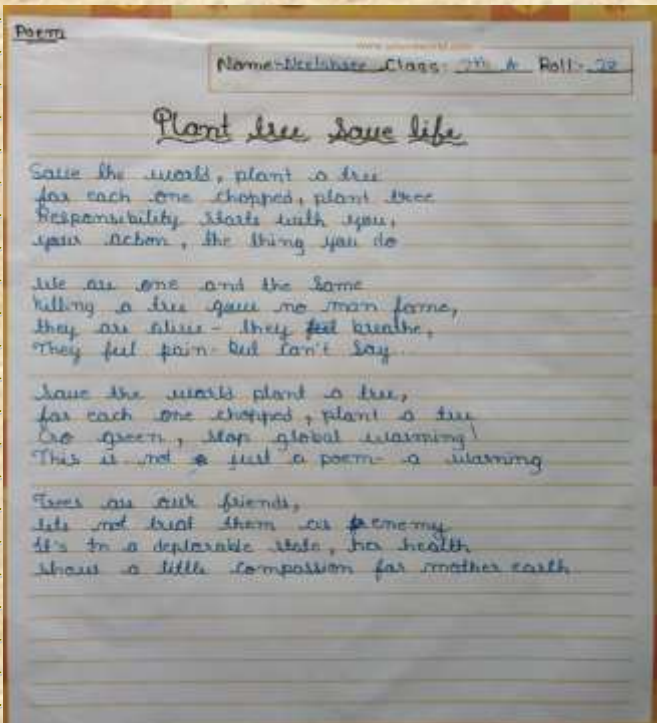 Poem
Name:- Neelshree Class:- 7th A Roll:- 28
Plant tree Save life
Save the world, plant a tree
for each one chopped, plant tree
Responsibility starts with you,
your action, the thing you do
We are one and the same
killing a tree gave no man fame,
they are alive - they breathe,
They feel pain - but can't say...
Save the world plant a tree,
for each one chopped, plant a tree
Go green, stop global warming!
This is not just a poem - a warning
Trees are our friends,
lets not treat them as enemy
It's in a deplorable state, her health
show a little compassion for mother earth